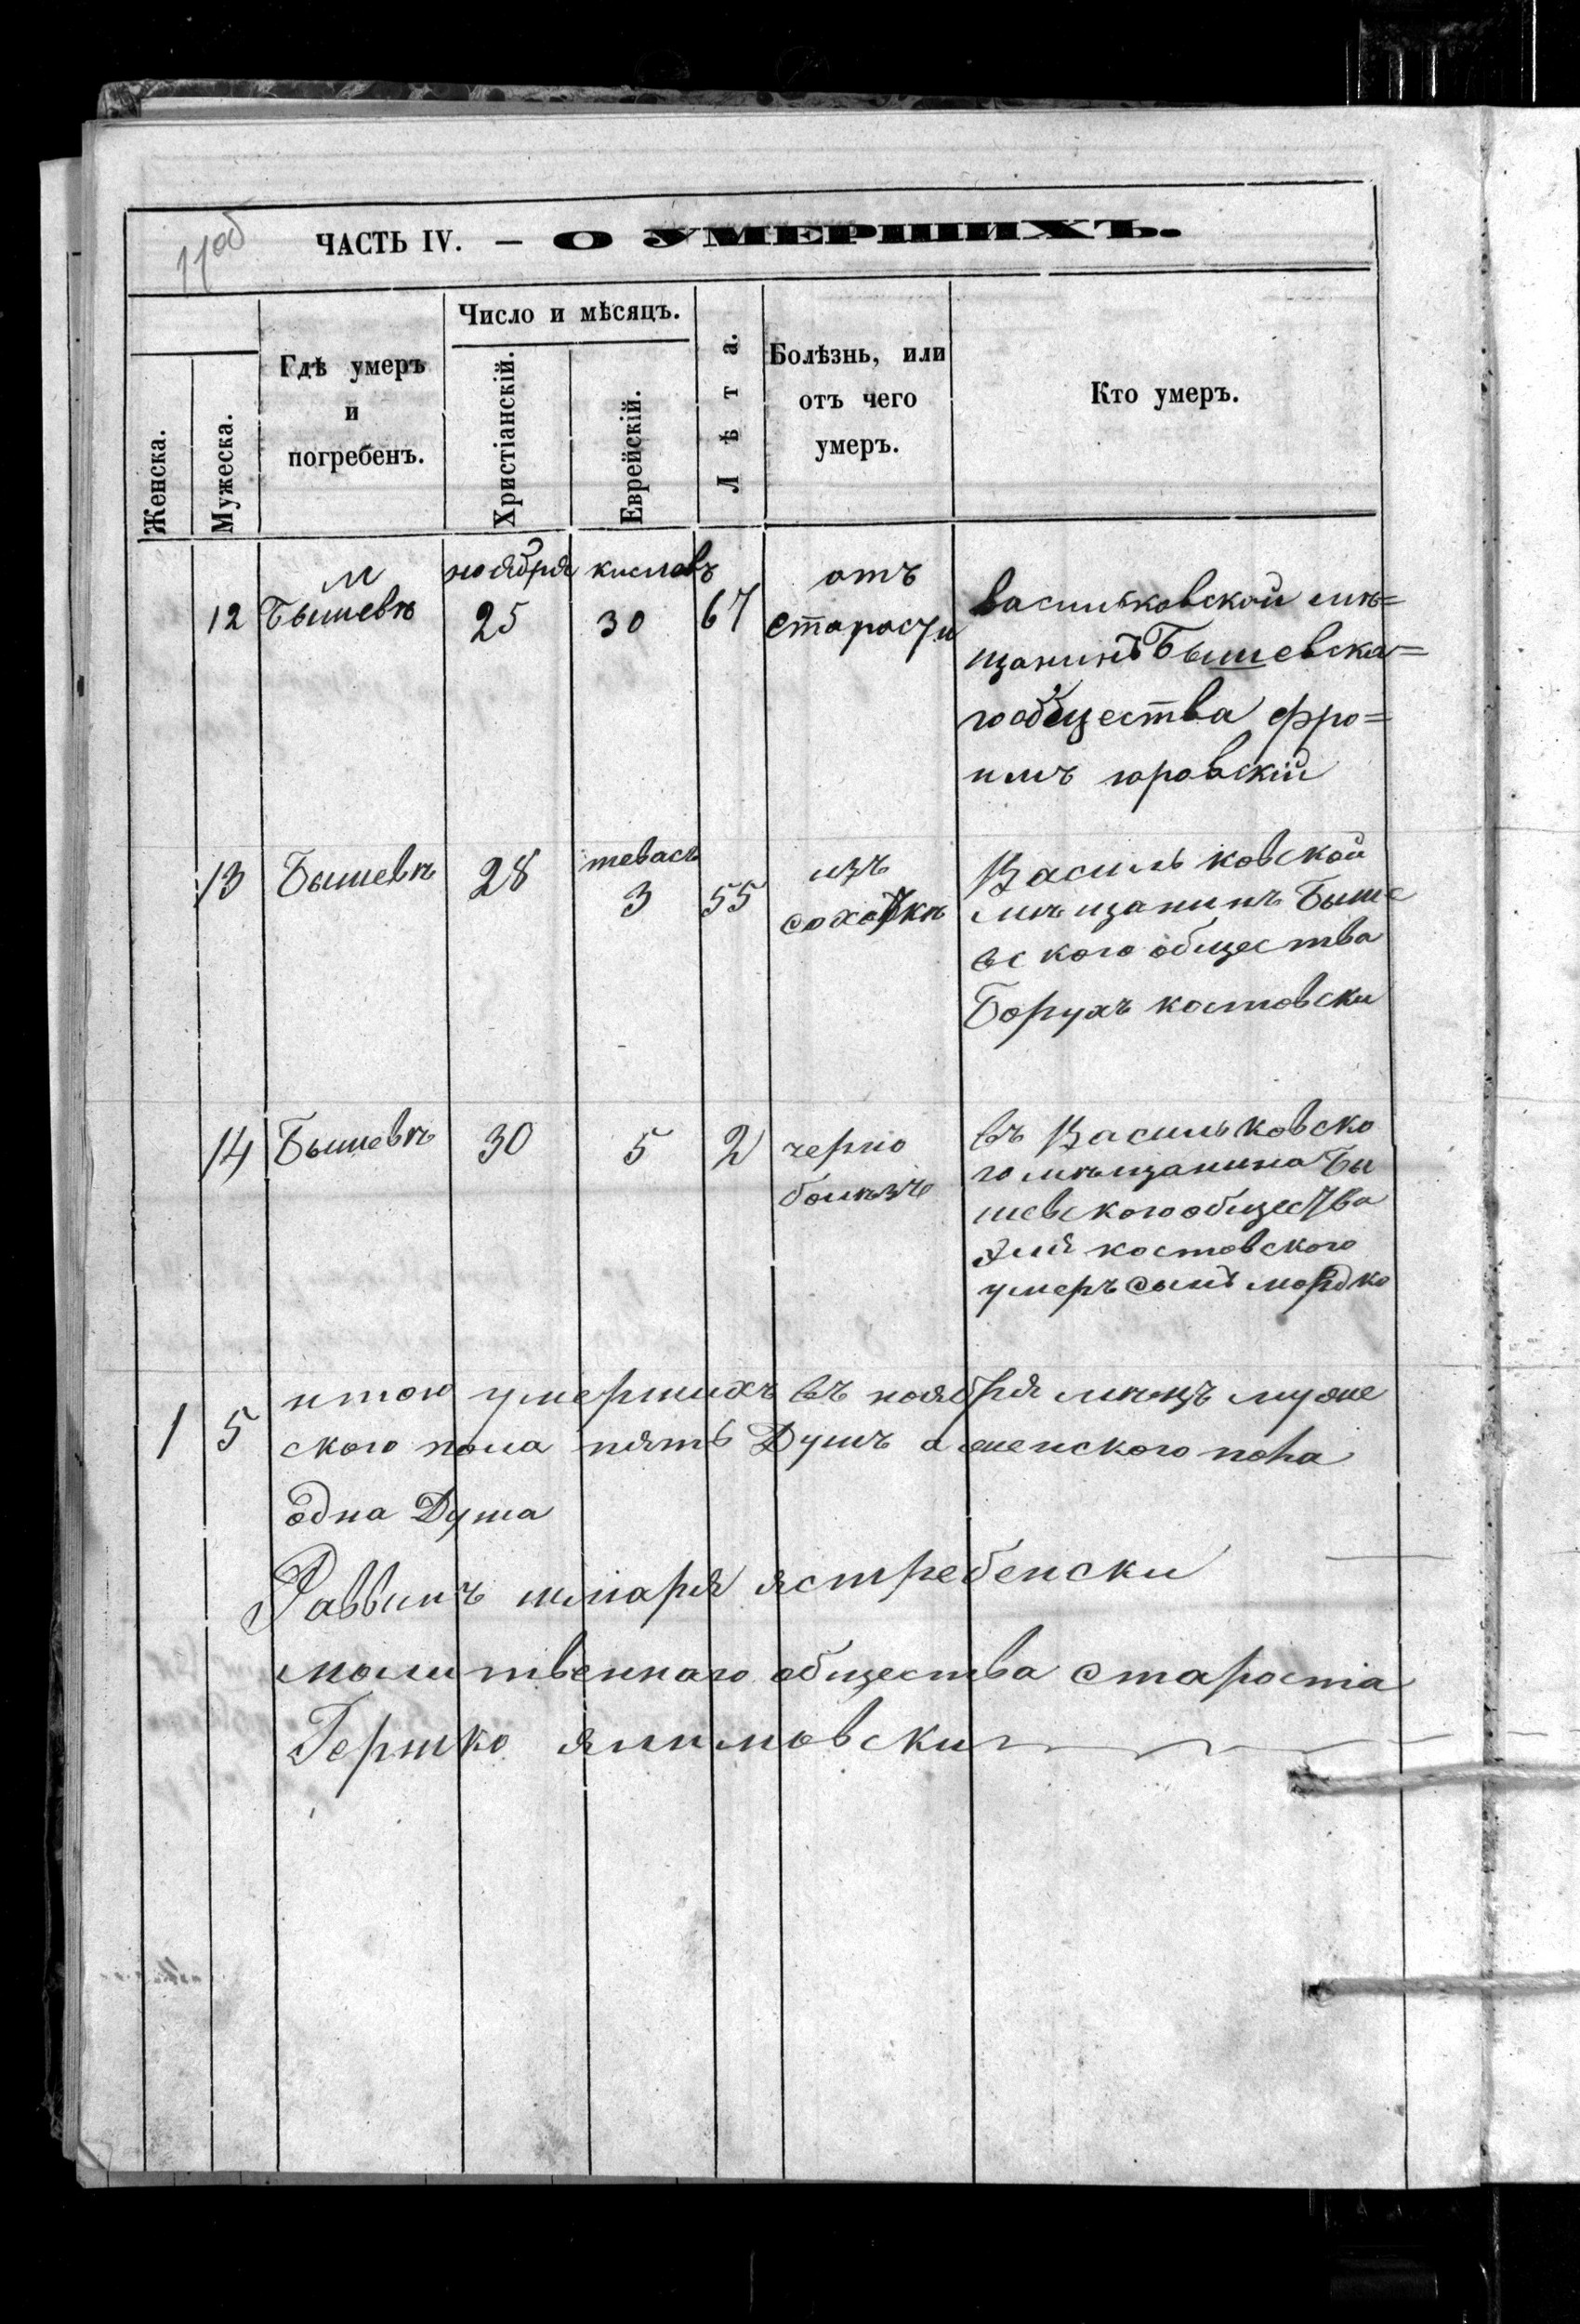 11об
ЧАСТЬ IV. — О УМЕРШИХЪ.
Женска.
Мужеска.
Гдѣ умеръ
и
погребенъ.
Число и мѣсяцъ.
Христіанскій.
Еврейскій.
Лѣта.
Болѣзнь, или
отъ чего
умеръ.
Кто умеръ.
12
м
Бышевѣ
ноября
25
кислевъ
30
67
отъ
старости
васильковской мѣ=
щанинъ Бышевска=
го общества фро=
имъ юровскій
13
Бышевѣ
28
тевасъ
3
55
изъ
сохоткѣ
Васильковской
мѣщанинъ Быше
вского общества
Борухъ костовски
14
Бышевѣ
30
5
2
черно
въ Васильковско
го мѣщанина Бы
шевского общества
костовского
умеръ сынъ мордко
1
5
итого умершихъ въ ноября мѣцъ муже
ского пола пять Душъ а женского пола
одна Душа
Раввинъ шмаря ястребенски
молитвеннаго общества староста
Гершко